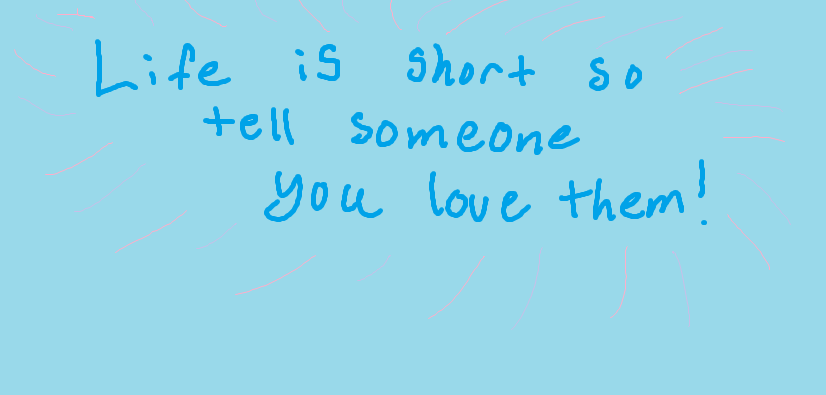 Life is short so
tell someone
you love them!